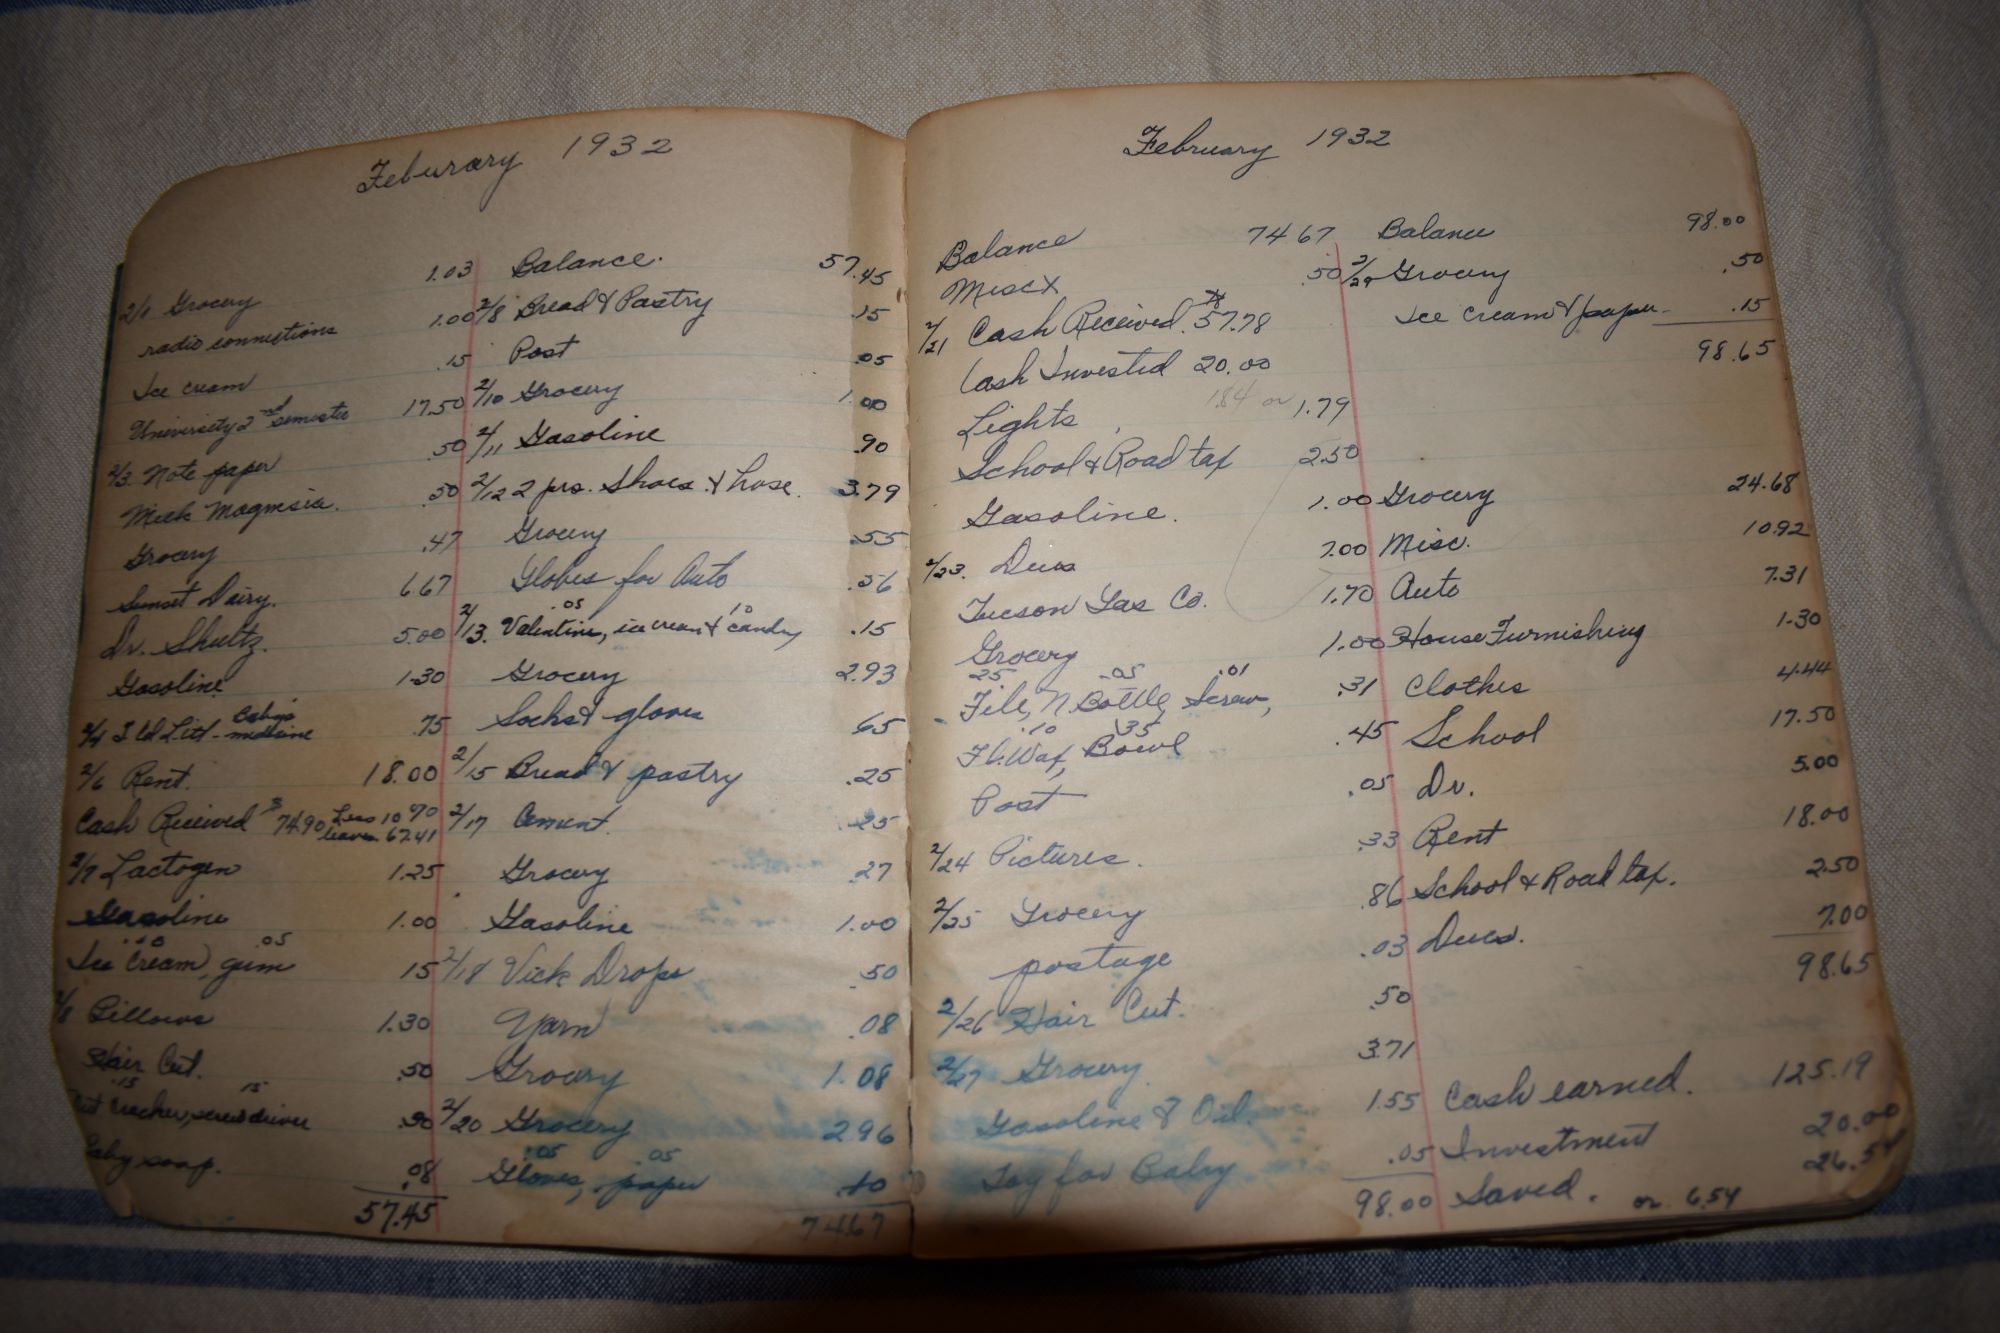 Feburary 1932
2/1 Grocery 1.03
radio connections 1.00
Ice cream .15
University 2nd semester 17.50
2/3 Note paper .50
Milk Magnesia. .50
Grocery .47
Sunset Dairy. 6 67
Dr. Shultz. 5.00
Gasoline 1.30
baby's
2/4 medicine .75
2/6 Rent. 18.00
Cash Received $74.90 Less 10 % leaves 67.41
2/7 Lactogen 1.25
Gasoline 1.00
.10 .05
Ice Cream, gum 15
2/8 Pillows 1.30
Hair Cut. .50
.15 15
Nut cracker, screwdriver .30
Baby soap. .08
57.45
Balance. 57.45
2/8 Bread & Pastry .15
Post .05
2/10 Grocery 1.00
2/11 Gasoline .90
2/12 2 prs. Shoes & hose. 3.79
Grocery .55
Globes for Auto .56
.05 10
2/13. Valentine, ice cream & candy .15
Grocery 2.93
Socks & gloves .65
2/15 Bread & pastry .25
2/17 Cement. .25
Grocery .27
Gasoline 1.00
2/18 Vick Drops .50
Yarn .08
Grocery 1.08
2/20 Grocery 2 96
.05 .05
Gloves, paper .10
74.67
February 1932
Balance 74 67
Misc .50
2/21 Cash Received. $57.78
Cash Invested 20.00
Lights 1.84 or 1.79
School & Road tax 2.50
Gasoline. 1.00
2/23. Dues 7.00
Tucson Gas Co. 1.70
Grocery 1.00
25 .05 .01
File, N. Bottle, Screw, .31
.10 .35
Fl. Wax, Bowl .45
Post .05
2/24 Pictures. .33
2/25 Grocery .86
postage .03
2/26 Hair Cut. .50
2/27 Grocery 3.71
Gasoline & Oil. 1.55
Toy for Baby .05
98.00
Balance 98.00
2/29 Grocery .50
Ice cream & paper .15
98.65
Grocery 24.68
Misc. 10.92
Auto 7.31
House Furnishing 1.30
Clothes 4.44
School 17.50
Dr. 5.00
Rent 18.00
School & Road tax. 2.50
Dues. 7.00
98.65
Cash earned. 125.19
Investment 20.00
Saved. or 6.54 26.54